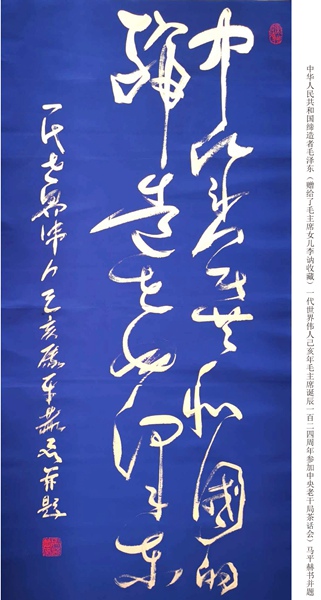 中华人民共和国缔造者毛泽东（赠给了毛主席女儿李讷收藏）一代世界伟人己亥年毛主席诞辰一百二四周年参加中央老干局茶话会）马平赫书并题
中华人民共和國的
缔造者毛泽东
一代世界伟人己亥